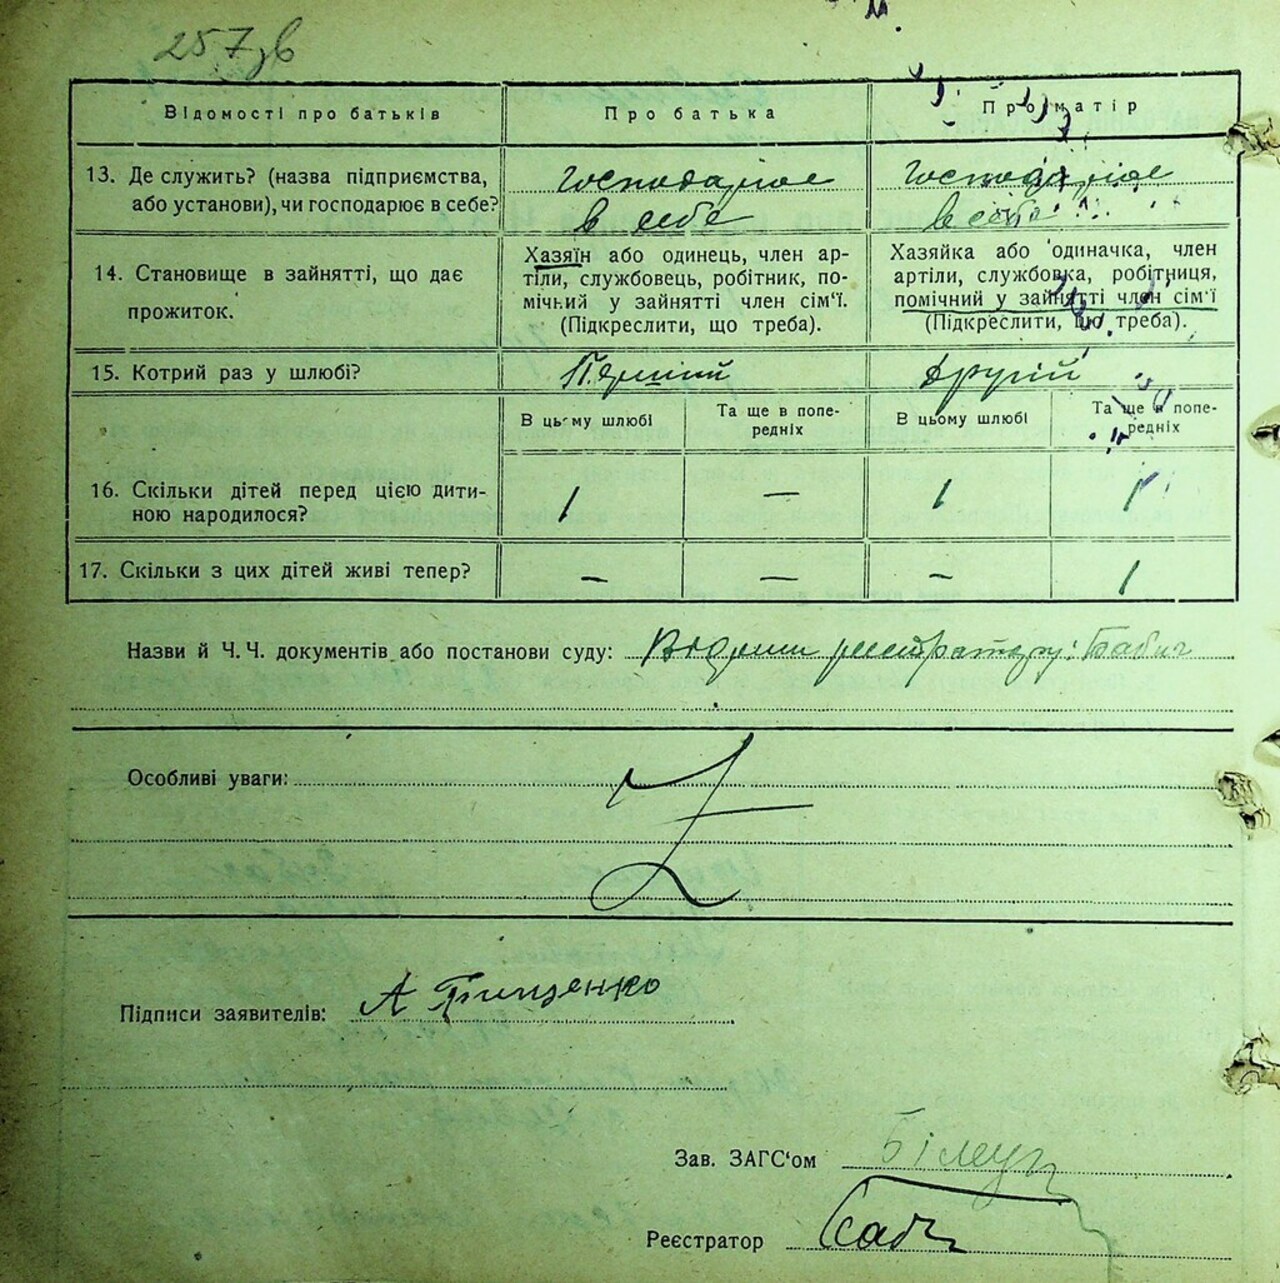 257зв
Відомості про батьків
Про батька
Про матір
13. Де служить? (назва підприємства,
або установи), чи господарює в себе?
господарює
в себе
господарює
в себе
14. Становище в зайнятті, що дає
прожиток.
Хазяїн або одинець, член ар-
тіли, службовець, робітник, по-
мічний у зайнятті член сім'ї.
(Підкреслити, що треба).
Хазяйка або одиначка, член
артіли, службовка, робітниця,
помічний у зайнятті член сім'ї
(Підкреслити, що треба).
15. Котрий раз у шлюбі?
Перший
другій
В цьому шлюбі
Та ще в попе-
редніх
В цьому шлюбі
Та ще в попе-
редніх
16. Скільки дітей перед цією дити-
ною народилося?
1 — 1 1
17. Скільки з цих дітей живі тепер?
— — — 1
Назви й Ч.Ч. документів або постанови суду: реєстратору: Бабич
Особливі уваги:
Підписи заявителів: А Грищенко
Зав. ЗАГС'ом
Реєстратор